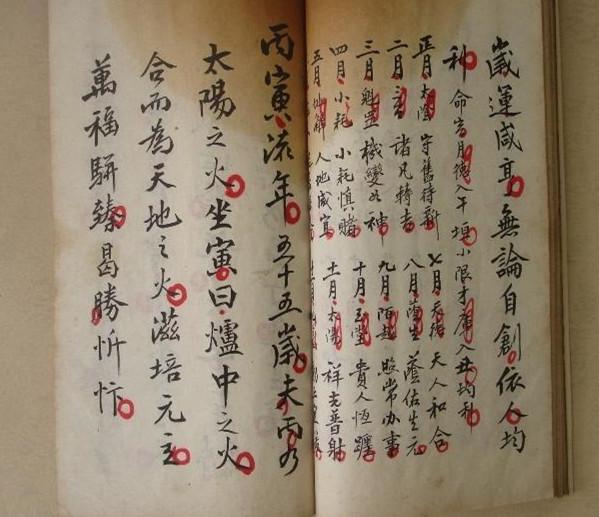 歲運咸亨無論自創依人均
利命宮月德入午垣小限才庫入丑均利
正月太陰 守舊待新 七月天德 天人和合
二月 諸凡轉吉 八月 蔭佑生元
三月魁罡 機變如神 九月陌越 照常办事
四月小耗 小耗慎賭 十月玉堂 貴人恆躔
五月 人地咸宜 十一月太陽 祥光普射
丙寅流年五十五歲夫丙乃
太陽之火坐寅曰爐中之火
合而為天地之火滋培元立
萬福駢臻曷勝忻忭